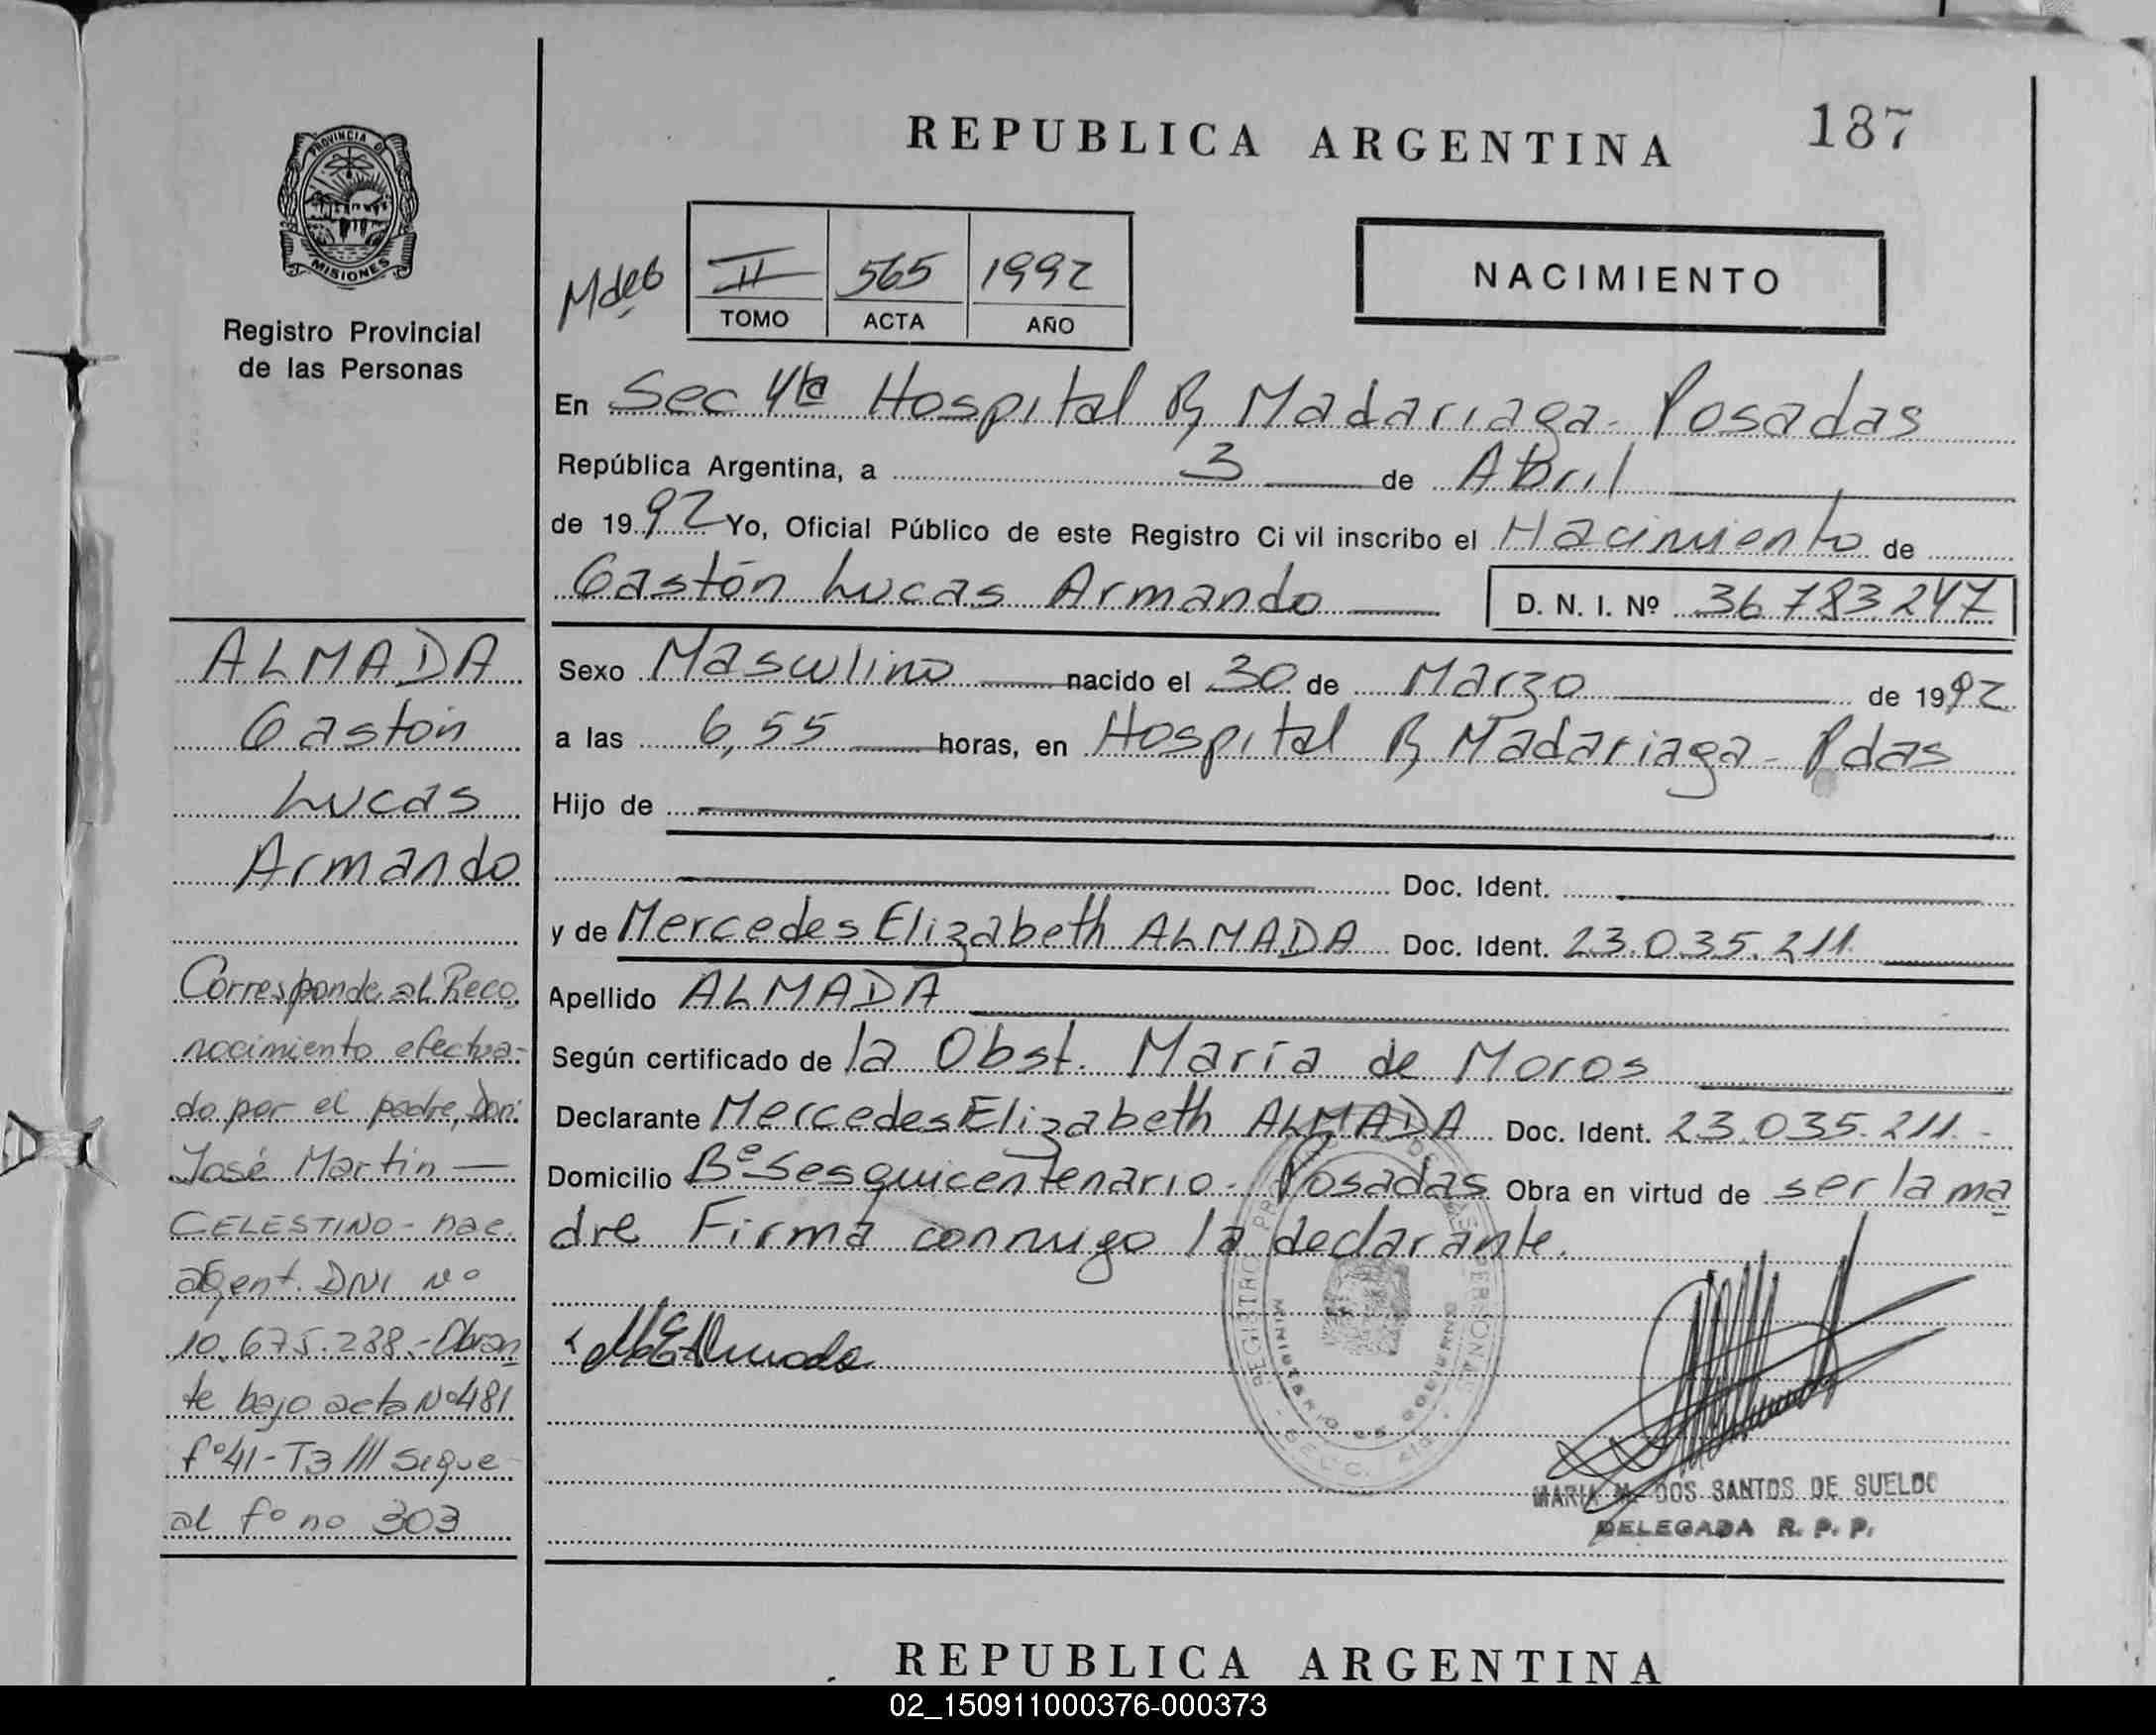 REPUBLICA ARGENTINA
187
PROVINCIA DE
MISIONES
Registro Provincial
de las Personas
II 565 1992
TOMO ACTA AÑO
NACIMIENTO
En Sec 4ta Hospital R, Madariaga - Posadas
República Argentina, a 3 de Abril
de 1992 Yo, Oficial Público de este Registro Ci vil inscribo el Nacimiento de
Gastón Lucas Armando D. N. I. Nº 36.783.247
Sexo Masculino nacido el 30 de Marzo de 1992
a las 6,55 horas, en Hospital R, Madariaga - Pdas
Hijo de
Doc. Ident.
y de Mercedes Elizabeth ALMADA Doc. Ident. 23.035.211.
Apellido ALMADA
Según certificado de la Obst. María de Moros
Declarante Mercedes Elizabeth ALMADA Doc. Ident. 23.035.211.-
Domicilio Bº Sesquicentenario - Posadas Obra en virtud de ser la ma
dre Firma conmigo la declarante.
MEAlmada
MARIA M. DOS SANTOS DE SUELDO
DELEGADA R. P. P.
ALMADA
Gastón
Lucas
Armando
Corresponde al Reco
nocimiento efectua-
do por el padre, Don:
José Martín —
CELESTINO - nac.
argent. DNI Nº
10.675.238.- Obran
te bajo acta Nº 481
fº 41 - T3 /// Sigue
al fº no 303
REPUBLICA ARGENTINA
02_150911000376-000373